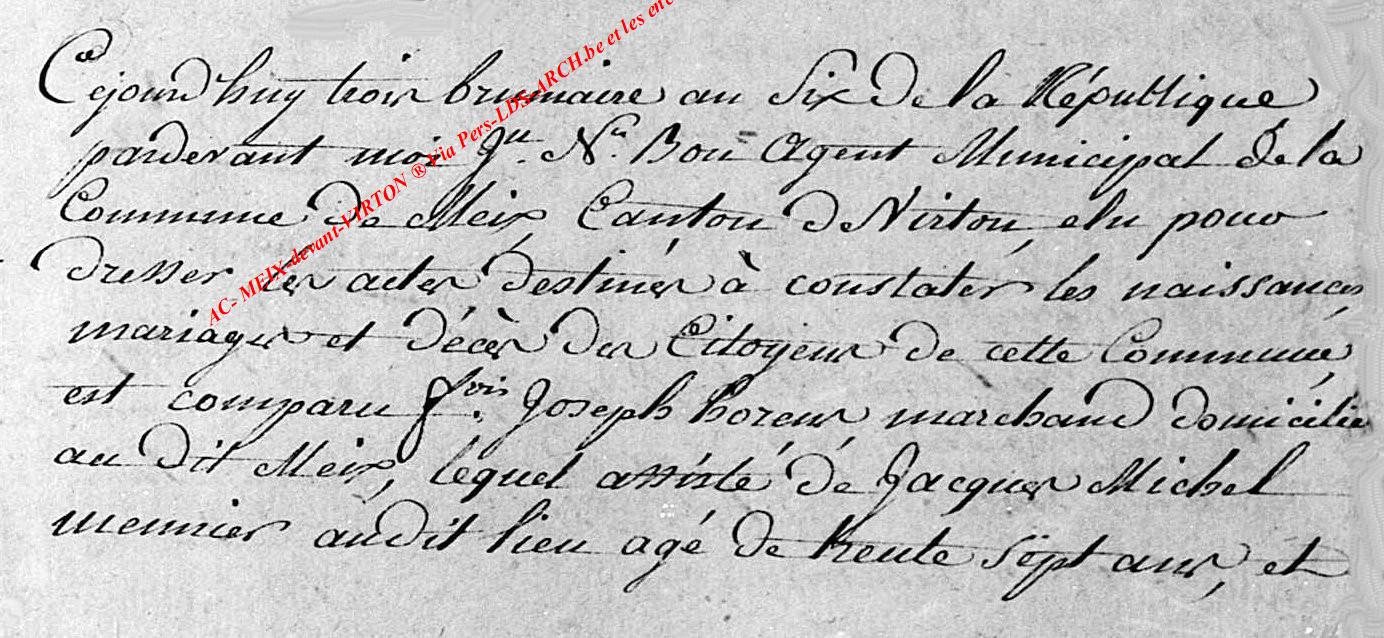 Cejourd huy trois brumaire an Six de la République
pardevant moi Jn. Ns. Bon Agent Municipal de la
Commune de Meix, Canton de Virton, elu pour
dresser les actes destinés à constater les naissances
mariages et décès des Citoyens de cette Commune,
est comparu fois. Joseph horeur, marchand domicilié
au dit Meix, lequel assisté de Jacques Michel
meunier audit lieu agé de trente sept ans, et
AC- MEIX-devant-VIRTON ® Via Pers-LDS-ARCH.be et les enc